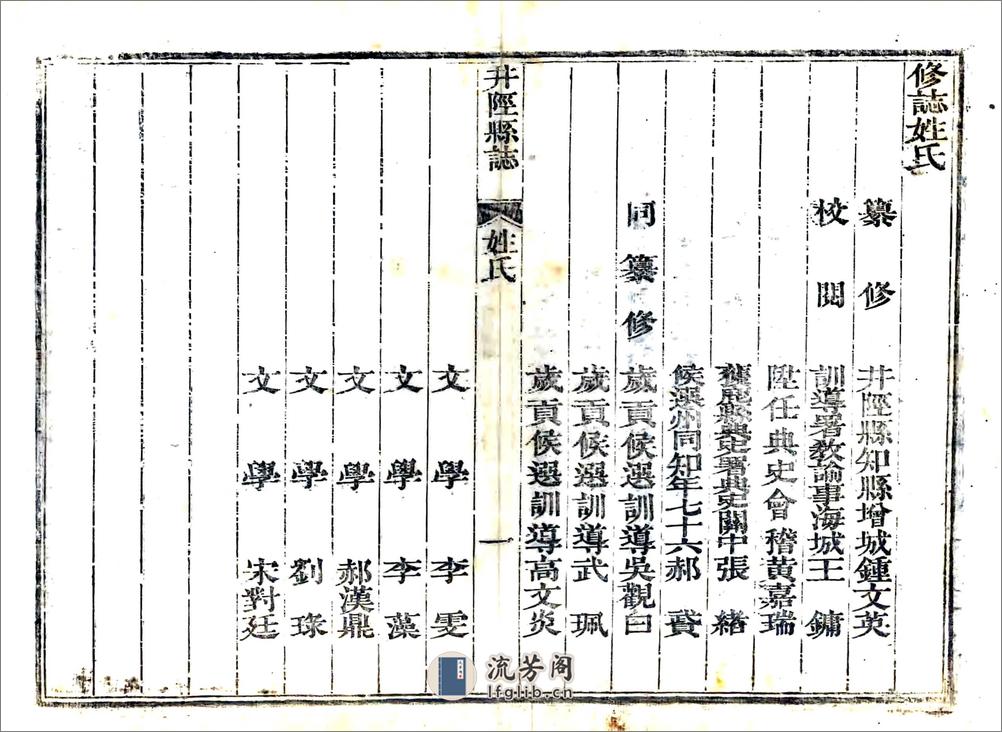 修誌姓氏
纂修 井陘縣知縣增城鍾文英
校閱 訓導署教諭事海城王鏞
陞任典史會稽黃嘉瑞
獲鹿縣典史署典史關中張緒
候選州同知年七十六郝賚
同纂修 歲貢候選訓導吳觀白
歲貢候選訓導武珮
歲貢候選訓導高文炎
井陘縣誌 姓氏 一
文學 李雯
文學 李藻
文學 郝漢鼎
文學 劉琭
文學 宋對廷
流芳阁
lfglib.cn